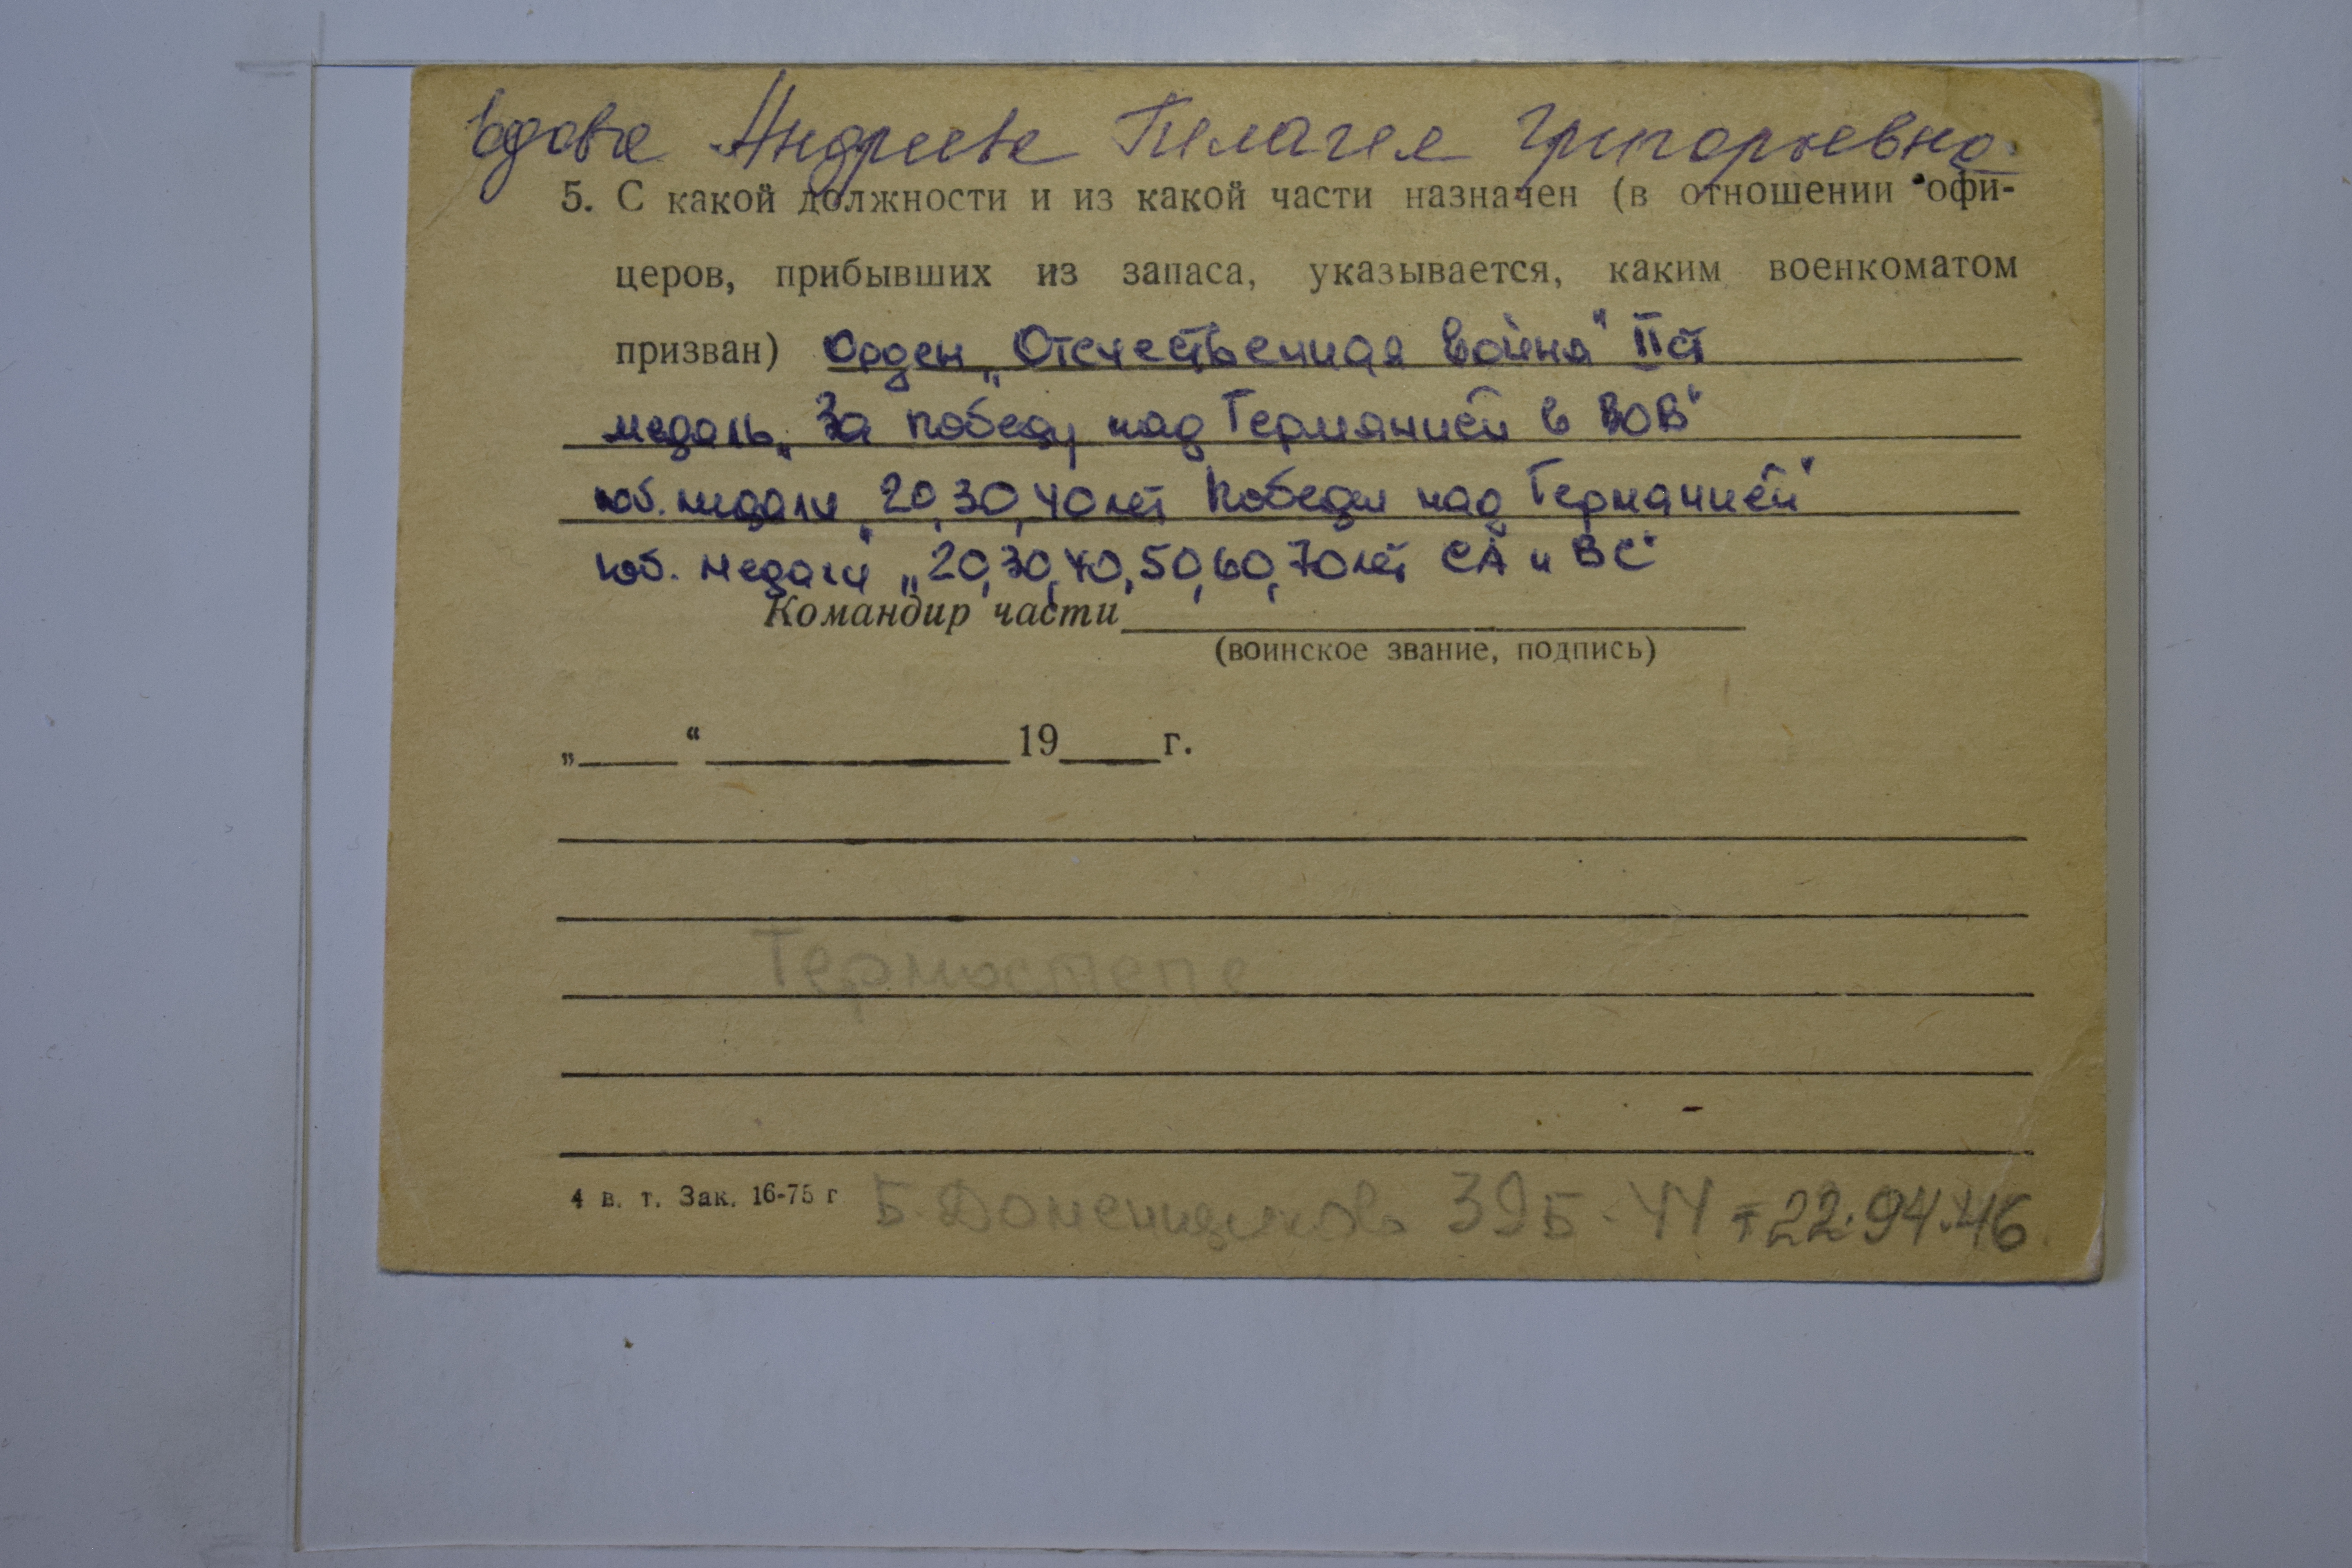 вдова Андреева Пелагея Григорьевна.
5. С какой должности и из какой части назначен (в отношении офи-
церов, прибывших из запаса, указывается, каким военкоматом
призван) Орден „Отечественная война" II ст
медаль „За победу над Германией в ВОВ"
юб. медали „20, 30, 40 лет Победы над Германией"
юб. медали „20, 30, 40, 50, 60, 70 лет СА и ВС"
Командир части
(воинское звание, подпись)
„ “ 19 г.
4 в. т. Зак. 16-75 г
Б. 39Б-44 т 22.94.46